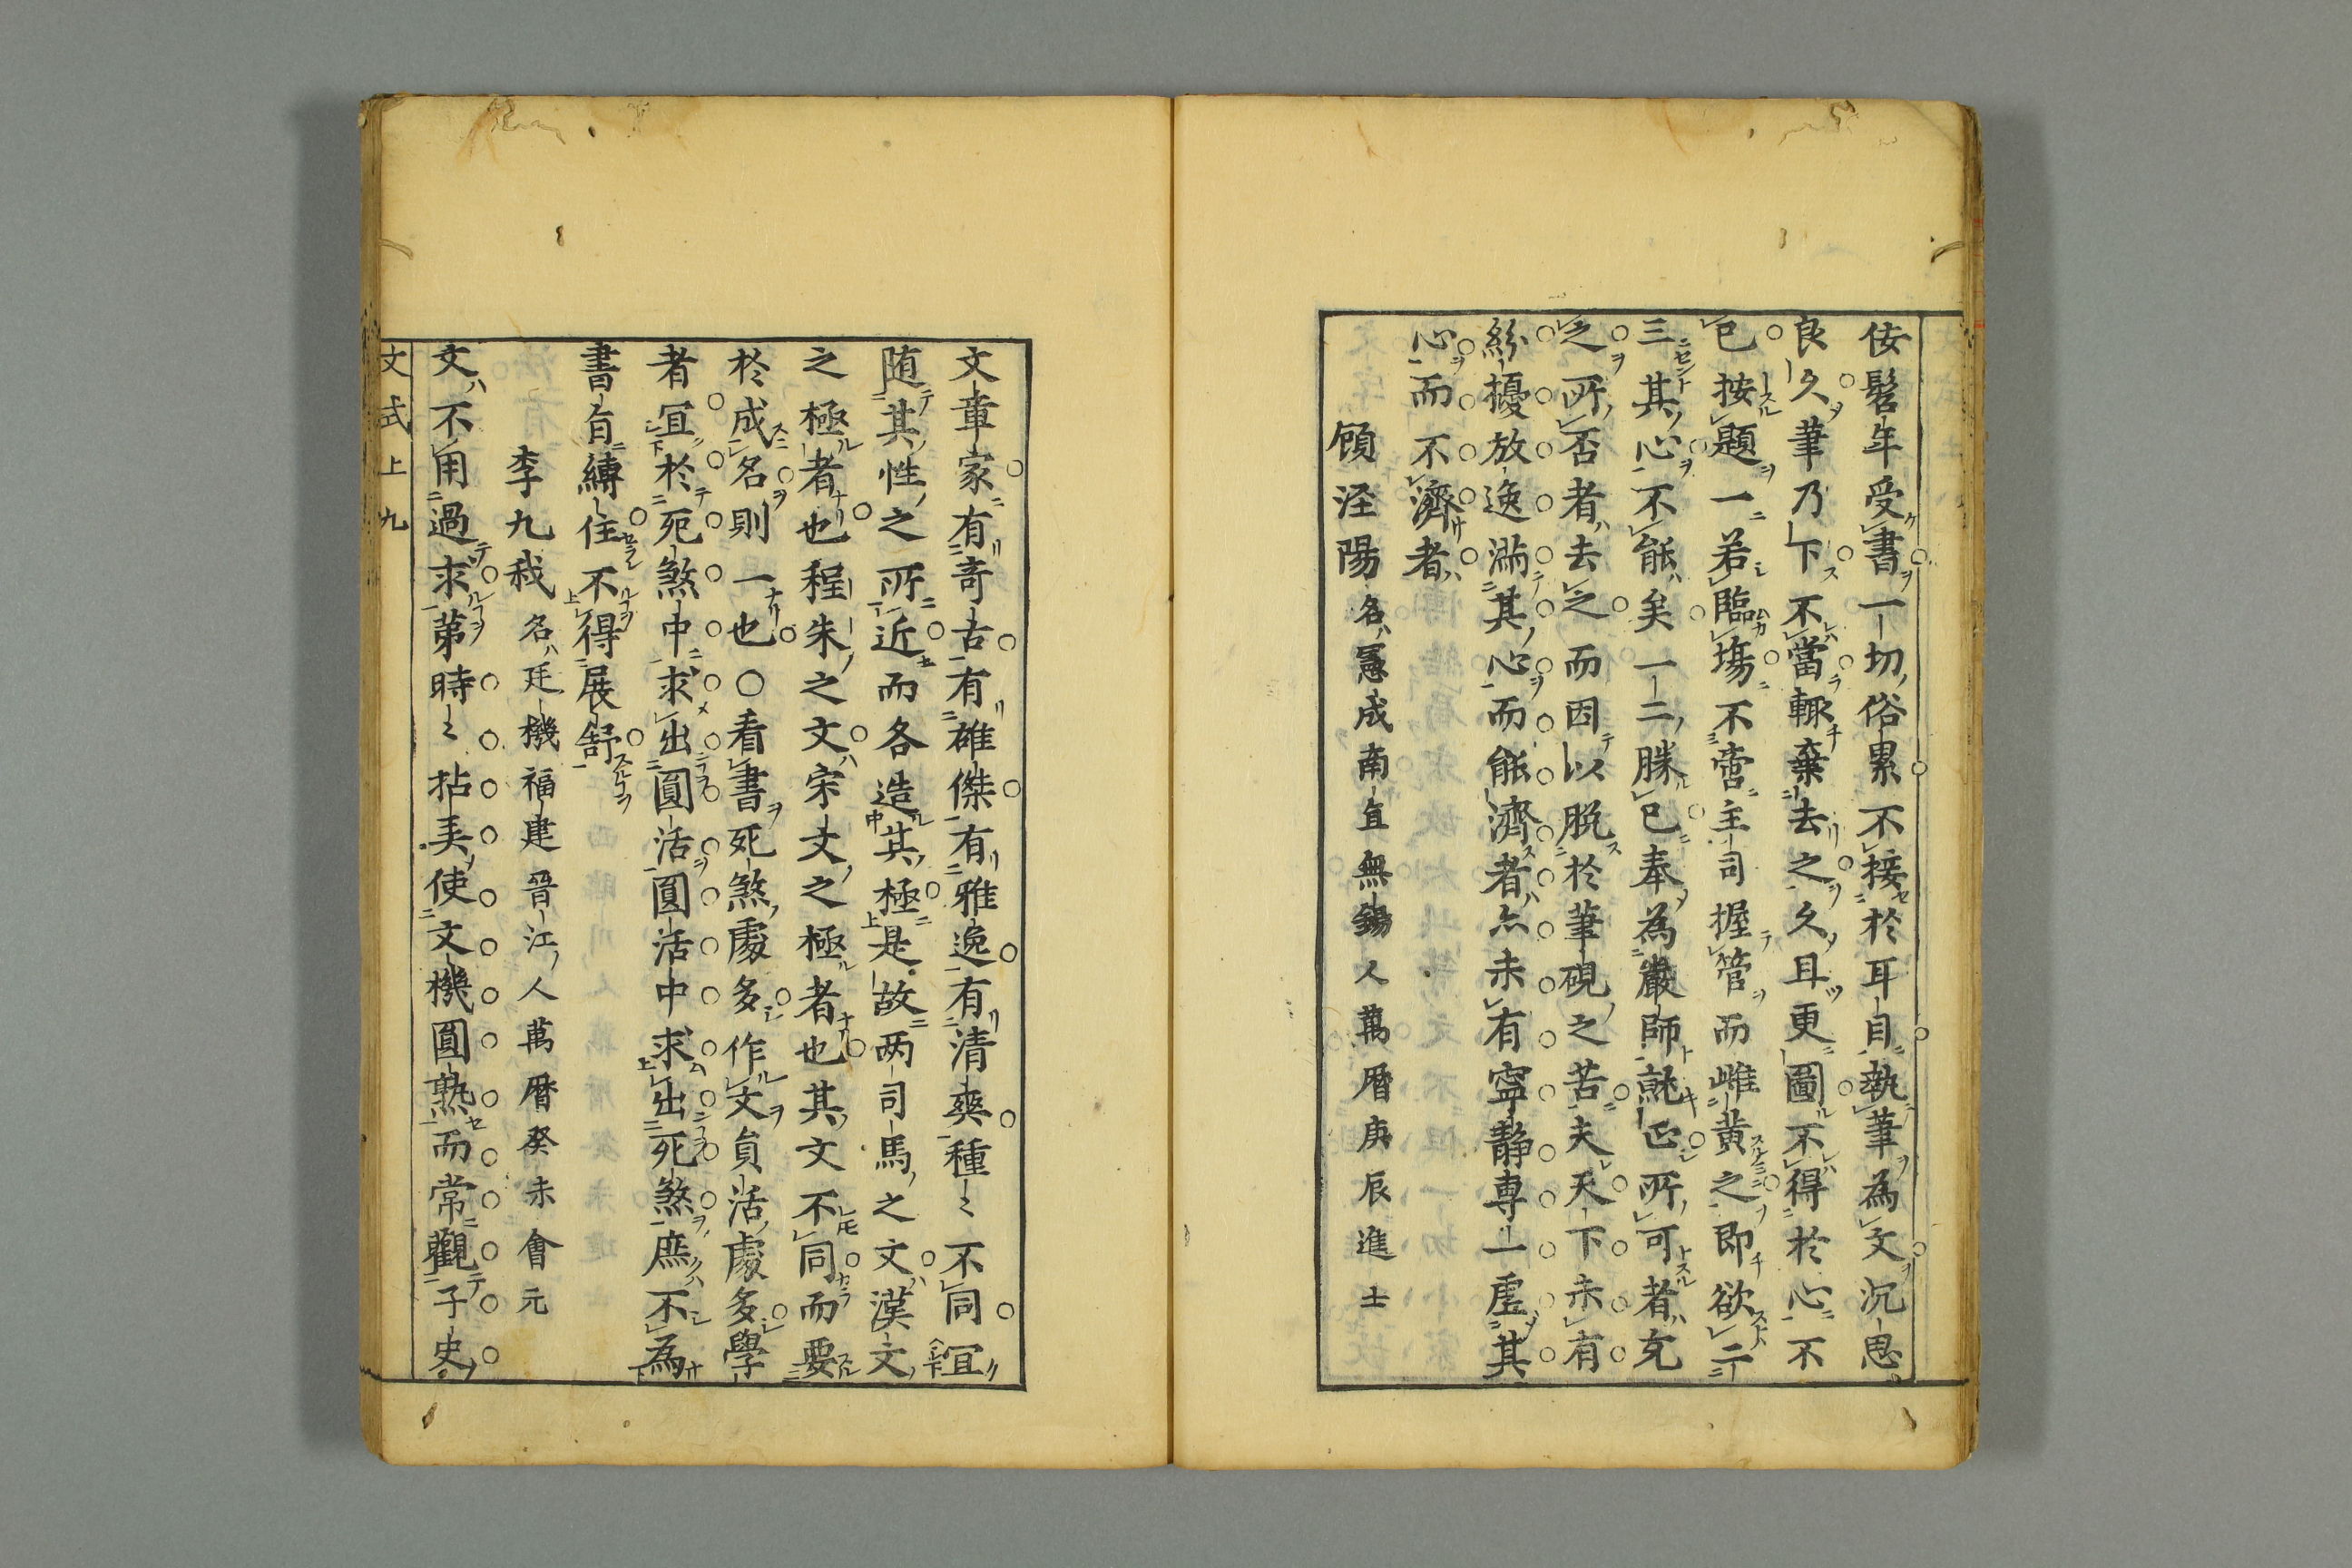 侫髫年受書一切俗累不接於耳目執筆為文沉思
良久筆乃下不當輙棄去之久且更圖不得於心不
已按題一若臨塲不啻主司握管而雌黄之即欲二
三其心不能矣一二勝已奉為嚴師就正所可者充
之所否者去之而因以脱於筆硯之苦夫天下未有
紛擾放逸滿其心而能濟者亦未有寧静専一虚其
心而不濟者
顧涇陽名憲成南直無錫人萬暦庚辰進士
文章家有竒古有雄傑有雅逸有清爽種〻不同冝
随其性之所近而各造其極是故两司馬之文漢文
之極者也程朱之文宋文之極者也其文不同而要
於成名則一也〇看書死煞處多作文員活處多學
者冝於死煞中求出圓活圓活中求出死煞庶不為
書旨縛住不得展舒
李九我名廷機福建晉江人萬暦癸未會元
文不用過求第時〻拈弄使文機圓熟而常觀子史
文式上九